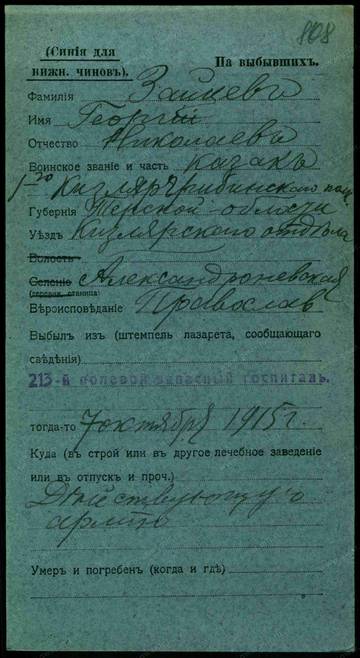 808
(Синія для нижн. чиновъ).
На выбывшихъ.
Фамилія Зайцевъ
Имя Георгій
Отчество Николаевъ
Воинское званіе и часть Казакъ
1го Кизляро-Гребенскаго полк.
Губернія Терской области
Уѣздъ Кизлярскаго отдѣла
Волость
Селеніе Александроневская
(деревня, станица)
Вѣроисповѣданіе Православ
Выбылъ изъ (штемпель лазарета, сообщающаго
свѣдѣнія)
213-й полевой запасный госпиталь.
тогда-то 7 октября 1915 г.
Куда (въ строй или въ другое лечебное заведеніе
или въ отпускъ и проч.)
Дѣйствующую
армію
Умеръ и погребенъ (когда и гдѣ)